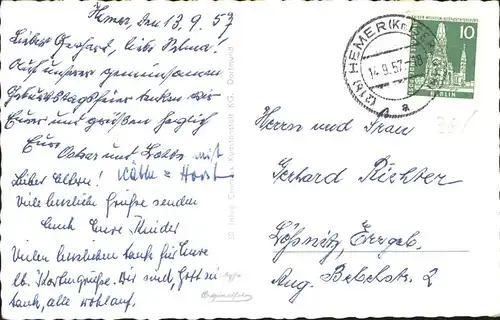 Hemer, den 13.9.57
Lieber Gerhard, liebe Selma!
Auf unserer gemeinsamen
Geburtstagsfeier denken wir
Eurer und grüßen herzlich
Eure
Oskar und Lotte mit
Käthe = Horst
Liebe Eltern!
Viele herzliche Grüße senden
Euch Eure Kinder
Vielen herzlichen Dank für Eure
lb. Kartengrüße. Wir sind, Gott sei
Dank, alle wohlauf.
KG, Dortmund
(21b) HEMER (Kr.
14.9.57
a
10
BERLIN
Herrn und Frau
Gerhard Richter
Lößnitz, Erzgeb.
Aug. Bebelstr. 2